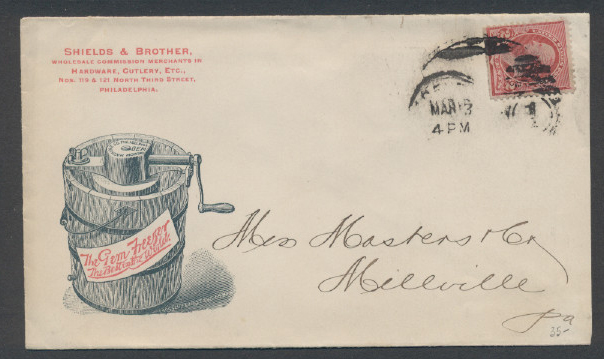 SHIELDS & BROTHER,
WHOLESALE COMMISSION MERCHANTS IN
HARDWARE, CUTLERY, ETC.,
NOS. 119 & 121 NORTH THIRD STREET,
PHILADELPHIA.
MAR
3
4 PM
The Gem Freezer
The Best in the World.
Mess Masters & Co
Millville
Pa
35-